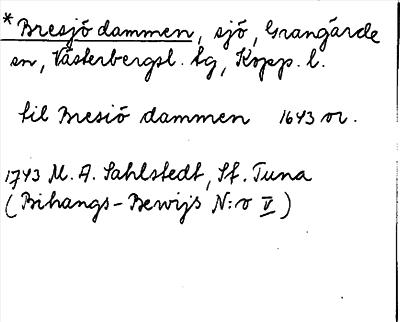 * Bresjö dammen, sjö, Grangärde
sn, Västerbergsl. tg, Kopp. l.
til Bresiö dammen 1643 or.
1743 M. A. Sahlstedt, St. Tuna
(Bihangs-Bewijs N:o V)